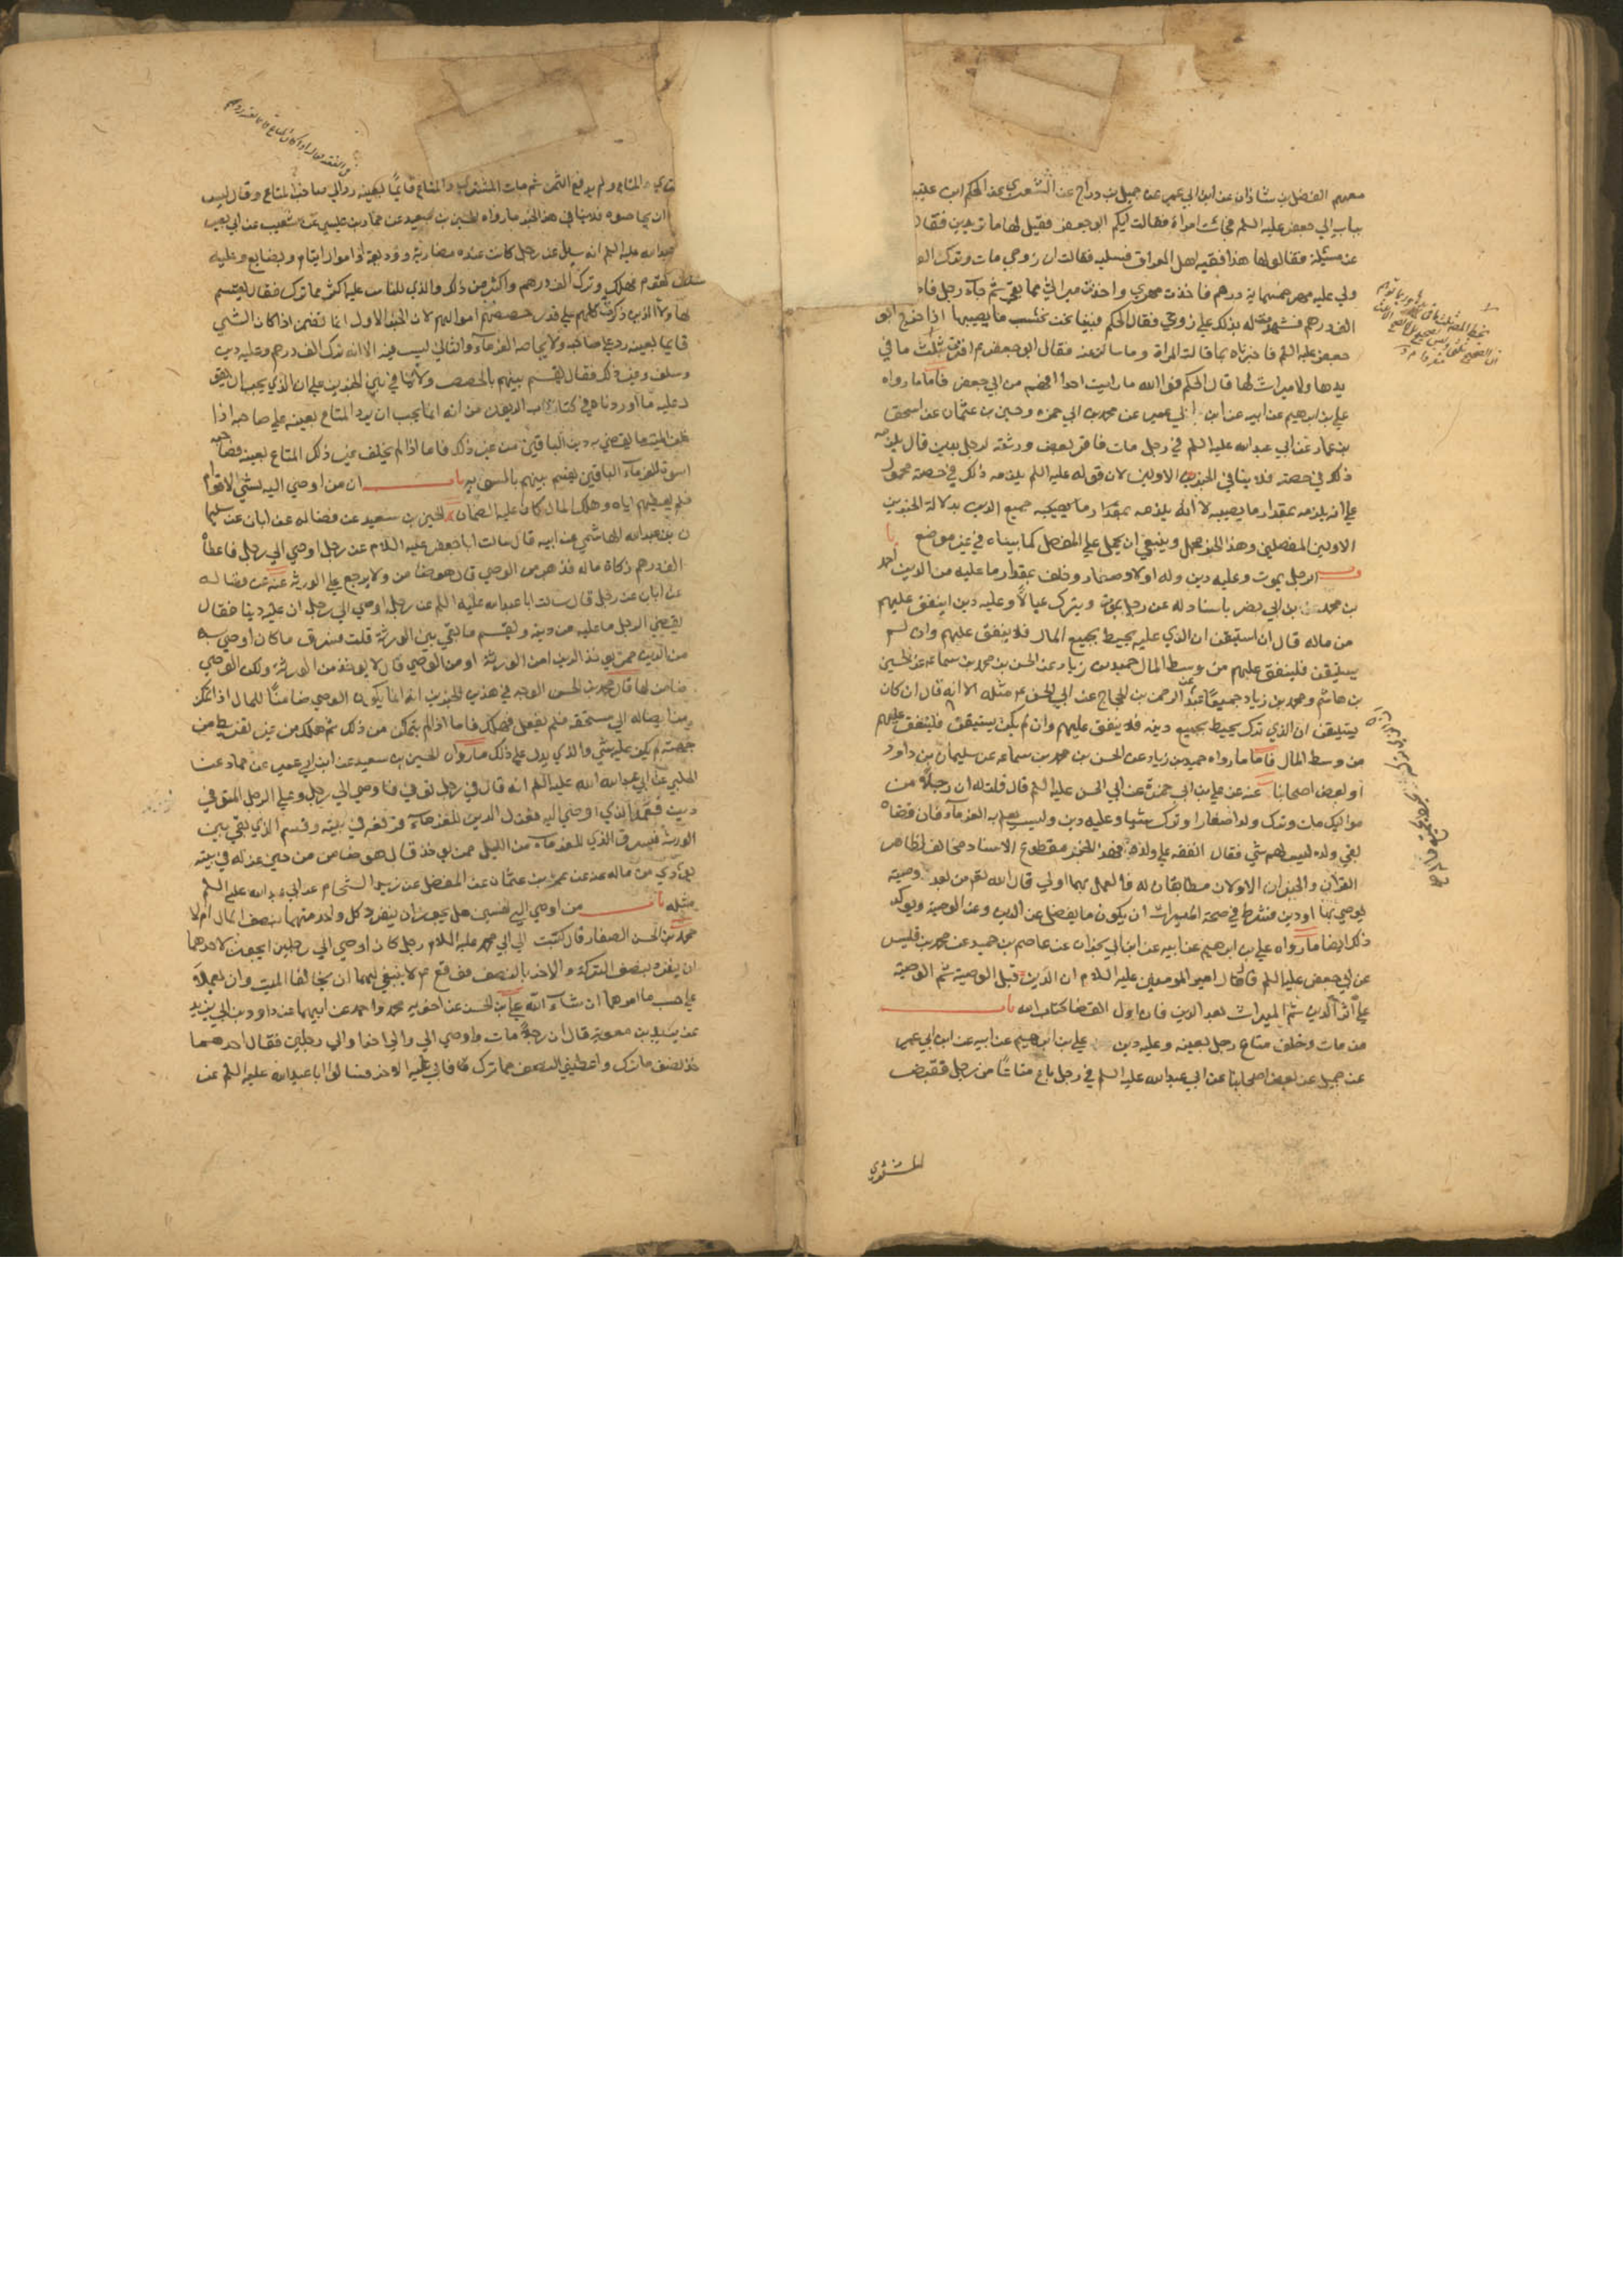 معهم الفضل بن شاذان عن ابن ابي عمير عن جميل بن دراج عن الشعيري عن الحكم ابن عتيبة
بباب ابي جعفر عليه السلم فجائت امراة فقالت ايكم ابو جعفر فقيل لها ما تريدين فقال
عن مسئلة فقالوا لها هذا فقيه اهل العراق فسليه فقالت ان زوجي مات وترك الف
ولي عليه مهر خمسماية درهم فاخذت مهري واخذت ميراثي مما بقي ثم جاء رجل فاد
الف درهم فشهدت له بذلك على زوجي فقال الحكم فبينا نحن نحسب ما يصيبها اذا خرج ابو
جعفر عليه السلم فاخبرناه بما قالت المراة وما سالت عنه فقال ابو جعفر ع اقرت بثلث ما في
يدها ولا ميراث لها قال الحكم فو الله ما رايت احدا افهم من ابي جعفر فاما ما رواه
علي بن ابرهيم عن ابيه عن ابن ابي عمير عن محمد بن ابي حمزه وحسين بن عثمان عن اسحق
بن عمار عن ابي عبد الله عليه السلم في رجل مات فاقر بعض ورثته لرجل بدين قال يلزمه
ذلك في حصته فلا ينافي الخبرين الاولين لان قوله عليه السلم يلزمه ذلك في حصته محمول
على انه يلزمه بمقدار ما يصيبه لا انه يلزمه بمقدار ما يصيبه جميع الدين بدلالة الخبرين
الاولين المفصلين وهذا الخبر مجمل وينبغي ان يحمل على المفصل كما بيناه في غير موضع با
ب الرجل يموت وعليه دين وله اولاد صغار وخلف بمقدار ما عليه من الدين احمد
بن محمد بن ابي نصر باسناد له عن رجل يموت ويترك عيالا وعليه دين اينفق عليهم
من ماله قال ان استيقن ان الذي عليه يحيط بجميع المال فلا ينفق عليهم وان لم
يستيقن فلينفق عليهم من وسط المال حميد بن زياد عن الحسن بن محمد بن سماعه عن الحسين
بن هاشم ومحمد بن زياد جميعا عن عبد الرحمن بن الحجاج عن ابي الحسن ع مثله الا انه قال ان كان
يستيقن ان الذي ترك يحيط بجميع دينه فلا ينفق عليهم وان لم يكن يستيقن فلينفق عليهم
من وسط المال فاما ما رواه حميد بن زياد عن الحسن بن محمد بن سماعه عن سليمان بن داود
او بعض اصحابنا عنه عن علي بن ابي حمزة عن ابي الحسن عليه السلم قال قلت له ان رجلا من
مواليك مات وترك ولدا صغارا وترك شيئا وعليه دين وليس يعلم به الغرماء فان قضاه
بقي ولده ليس لهم شي فقال انفقه على ولده فهذا الخبر مقطوع الاسناد مخالف لظاهر
القران والخبران الاولان مطابقان له فالعمل بهما اولى قال الله تعالى من بعد وصية
يوصي بها او دين فشرط في صحة الميراث ان يكون ما يفضل عن الدين وعن الوصية ويؤكد
ذلك ايضا ما رواه علي بن ابرهيم عن ابيه عن ابن ابي نجران عن عاصم بن حميد عن محمد بن قيس
عن ابي جعفر عليه السلم قال قال امير المومنين عليه السلام ان الدين قبل الوصية ثم الوصية
على اثر الدين ثم الميراث بعد الدين فان اول القضا كتاب الله باب
من مات وخلف متاع رجل بعينه وعليه دين علي بن ابرهيم عن ابيه عن ابن ابي عمير
عن جميل عن بعض اصحابنا عن ابي عبد الله عليه السلم في رجل باع متاعا من رجل فقبض
المشتري
المتاع ولم يدفع الثمن ثم مات المشتري والمتاع قايما بعينه رد الى صاحب المتاع وقال ليس
ان يحاصوه فلا ينافي هذا الخبر ما رواه الحسين بن سعيد عن حماد بن عيسى عن شعيب عن ابي بصير
عبد الله عليه السلم انه سئل عن رجل كانت عنده مضاربة ووديعة واموال ايتام وبضايع وعليه
سلف لقوم فهلك وترك الف درهم واكثر من ذلك والذي للناس عليه اكثر مما ترك فقال يقسم
لهولاء الذين ذكرت كلهم على قدر حصصهم اموالهم لان الخبر الاول انما تضمن اذا كان الشي
قايما بعينه رد على صاحبه ولا يحاصه الغرماء والثاني ليس فيه الا انه ترك الف درهم وعليه دين
وسلف وغير ذلك فقال يقسم بينهم بالحصص ولا تنافي بين الخبرين على ان الذي يجب ان يقضي
خلف الميت ما يقضي به دين الباقين من غير ذلك فاما اذا لم يخلف غير ذلك المتاع بعينه فصاحبه
اسوة للغرماء الباقين يقسم بينهم بالسوية باب ان من اوصي اليه بشي لاقوام
فلم يعطهم اياه وهلك المال كان عليه الضمان الحسين بن سعيد عن فضاله عن ابان عن سليما
ن بن عبد الله الهاشمي عن ابيه قال سالت ابا جعفر عليه السلام عن رجل اوصى الى رجل فاعطاه
الف درهم زكاة ماله فذهبت من الوصي قال هو ضامن ولا يرجع على الورثة عنه عن فضاله
عن ابان عن رجل قال سالت ابا عبد الله عليه السلم عن رجل اوصى الى رجل ان عليه دينا فقال
يقضي الرجل ما عليه من دينه ويقسم ما بقي بين الورثة قلت فسرق ما كان اوصى به
من الدين ممن يؤخذ الدين امن الورثة او من الوصي قال لا يؤخذ من الورثة ولكن الوصي
ضامن لها قال محمد بن الحسن الوجه في هذين الخبرين انه انما يكون الوصي ضامنا للمال اذا تمكن
من ايصاله الى مستحقه فلم يفعل فهلك فاما اذا لم يتمكن من ذلك ثم هلك من غير تفريط من
جهته لم يكن عليه شي والذي يدل على ذلك ما رواه الحسين بن سعيد عن ابن ابي عمير عن حماد عن
الحلبي عن ابي عبد الله عليه السلم انه قال في رجل توفي فاوصى الى رجل وعلى الرجل المتوفي
دين فعمد الذي اوصي اليه فعزل الدين للغرماء فرفعه في بيته وقسم الذي بقي بين
الورثة فيسرق الذي للغرماء من الليل ممن يؤخذ قال هو ضامن من حين عزله في بيته
يؤدي من ماله عنه عن عمرو بن عثمان عن المفضل عن زيد الشحام عن ابي عبد الله عليه السلم
مثله باب من اوصي الى نفسين هل يجوز ان ينفرد كل واحد منهما بنصف المال ام لا
محمد بن الحسن الصفار قال كتبت الى ابي محمد عليه السلام رجل كان اوصى الى رجلين ايجوز لاحدهما
ان ينفرد بنصف التركة والاخر بالنصف فوقع ع لا ينبغي لهما ان يخالفا الميت وان يعملا
على حسب ما امرهما ان شاء الله علي بن الحسن عن اخويه محمد واحمد عن ابيهما عن داود بن ابي يزيد
عن بريد بن معوية قال ان رجلا مات واوصى الي والى اخر او الى رجلين فقال احدهما
خذ نصف ما ترك واعطني النصف مما ترك فابى عليه الاخر فسالوا ابا عبد الله عليه السلم عن